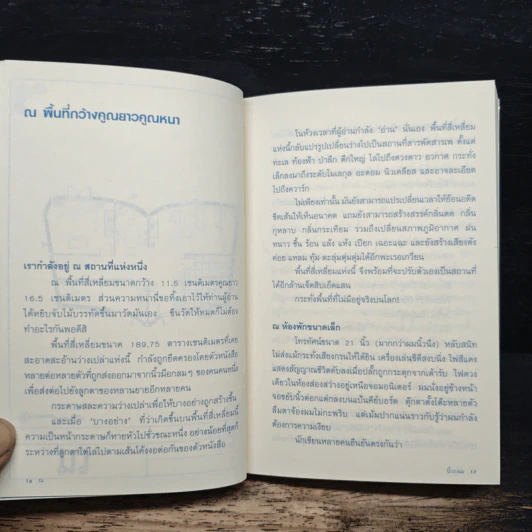 ณ พื้นที่กว้างคูณยาวคูณหนา
เรากำลังอยู่ ณ สถานที่แห่งหนึ่ง
ณ พื้นที่สี่เหลี่ยมขนาดกว้าง 11.5 เซนติเมตรคูณยาว
16.5 เซนติเมตร ส่วนความหนานี่ขอทิ้งเอาไว้ให้ท่านผู้อ่าน
ได้หยิบจับไม้บรรทัดขึ้นมาวัดมันเอง ขืนวัดให้หมดก็ไม่ต้อง
ทำอะไรกันพอดีสิ
พื้นที่สี่เหลี่ยมขนาด 189.75 ตารางเซนติเมตรที่เคย
สะอาดสะอ้านว่างเปล่าแห่งนี้ กำลังถูกยึดครองโดยตัวหนังสือ
หลายต่อหลายตัวที่ถูกส่งออกมาจากนิ้วมือกลมๆ ของคนคนหนึ่ง
เพื่อส่งต่อไปยังลูกตาของหลานยายอีกหลายคน
กระดาษสละความว่างเปล่าเพื่อให้บางอย่างถูกสร้างขึ้น
และเมื่อ "บางอย่าง" ที่ว่าเกิดขึ้นบนพื้นที่สี่เหลี่ยมนี้
ความเป็นหน้ากระดาษก็หายไปชั่วขณะหนึ่ง อย่างน้อยที่สุดก็
ระหว่างที่ลูกตาไต่ไล่ไปตามเส้นโค้งงอต่อกันของตัวหนังสือ
16 ณ
ในห้วงเวลาที่ผู้อ่านกำลัง "อ่าน" นั่นเอง พื้นที่สี่เหลี่ยม
แห่งนี้กลับแปรรูปเปลี่ยนร่างไปเป็นสถานที่สารพัดสารเพ ตั้งแต่
ทะเล ท้องฟ้า ป่าลึก ตึกใหญ่ ไล่ไปถึงดวงดาว อวกาศ กระทั่ง
เล็กลงมาถึงระดับโมเลกุล อะตอม นิวเคลียส และอาจละเอียด
ไปถึงควาร์ก
ไม่เพียงเท่านั้น มันยังสามารถแปรเปลี่ยนเวลาให้ย้อนอดีต
ขีดเส้นให้เห็นอนาคต แถมยังสามารถสร้างสรรค์กลิ่นตด กลิ่น
กุหลาบ กลิ่นกระเทียม รวมถึงเปลี่ยนสภาพภูมิอากาศ ฝน
หนาว ชื้น ร้อน แล้ง แห้ง เปียก เฉอะแฉะ และยังสร้างเสียงดัง
ค่อย แหลม ทุ้ม ตะลุ่มตุ่มตุ่มได้อีกพะเรอเกวียน
พื้นที่สี่เหลี่ยมแห่งนี้ จึงพร้อมที่จะปรับตัวเองเป็นสถานที่
ได้อีกล้านเจ็ดสิบเอ็ดแสน
กระทั่งพื้นที่ที่ไม่มีอยู่จริงบนโลก!
ณ ห้องพักขนาดเล็ก
โทรทัศน์ขนาด 21 นิ้ว (มากกว่าผมนิ้วนึง) หลับสนิท
ไม่ส่งแม้กระทั่งเสียงกรนให้ได้ยิน เครื่องเล่นซีดีสงบนิ่ง ไฟสีแดง
แสดงสัญญาณชีวิตดับลงเมื่อปลั๊กถูกกระตุกจากเต้ารับ ไฟดวง
เดียวในห้องส่องสว่างอยู่เหนือจอมอนิเตอร์ ผมนั่งอยู่ข้างหน้า
จอขยับนิ้วต่อกแต่กลงบนแป้นคีย์บอร์ด ตุ๊กตาตั้งโต๊ะหลายตัว
ลืมตาจ้องผมไม่กะพริบ แต่เม้มปากแน่นราวกับรู้ว่าผมกำลัง
ต้องการความเงียบ
นักเขียนหลายคนยืนยันตรงกันว่า
นิ้วกลม 17